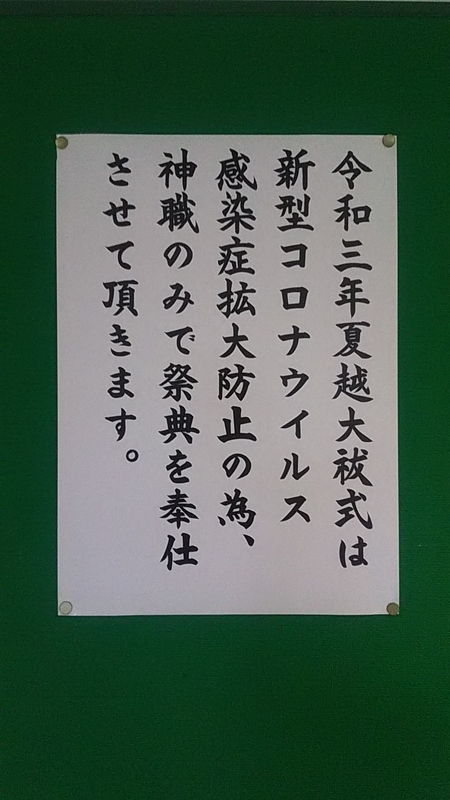 令和三年夏越大祓式は
新型コロナウイルス
感染症拡大防止の為、
神職のみで祭典を奉仕
させて頂きます。